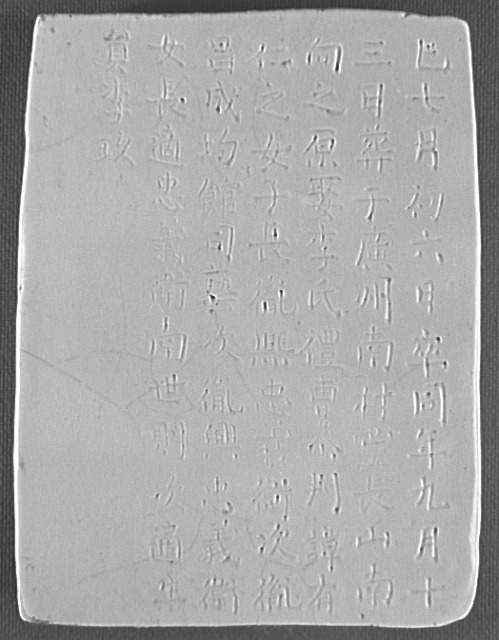 巳七月初六日卒同年九月十
三日葬于廣州南村堂長山南
向之原娶李氏禮曹小判諱有
仁之女子長胤熙忠義衛次胤
昌成均館司藝次胤興忠義衛
女長適忠義衛南世則次適生
員李玖